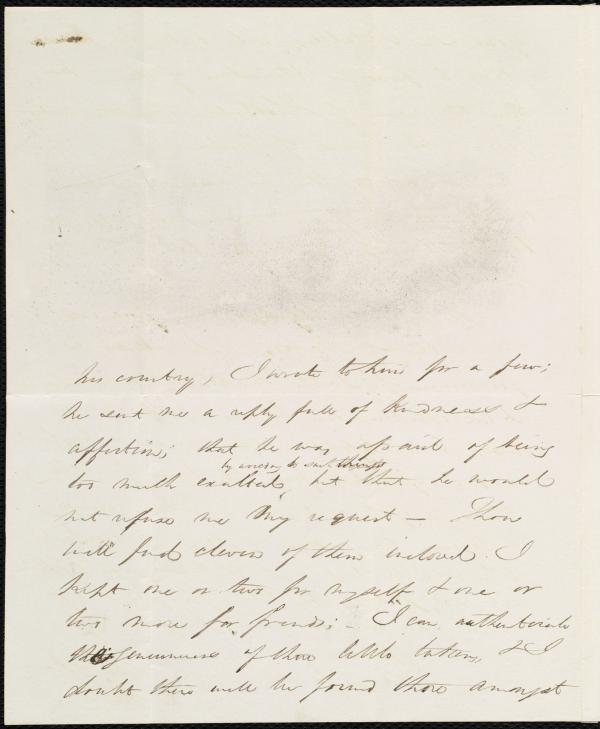 his country, I wrote to him for a few;
he sent me a reply full of kindness &
affection; that he was afraid of being
by such things
too much exalted, but that he would
not refuse me my request — Thou
will find eleven of them inclosed. I
kept one or two for myself & one or
two more for friends; — I can authenticate
genuineness of those little tokens, & I
doubt there will be found those amongst